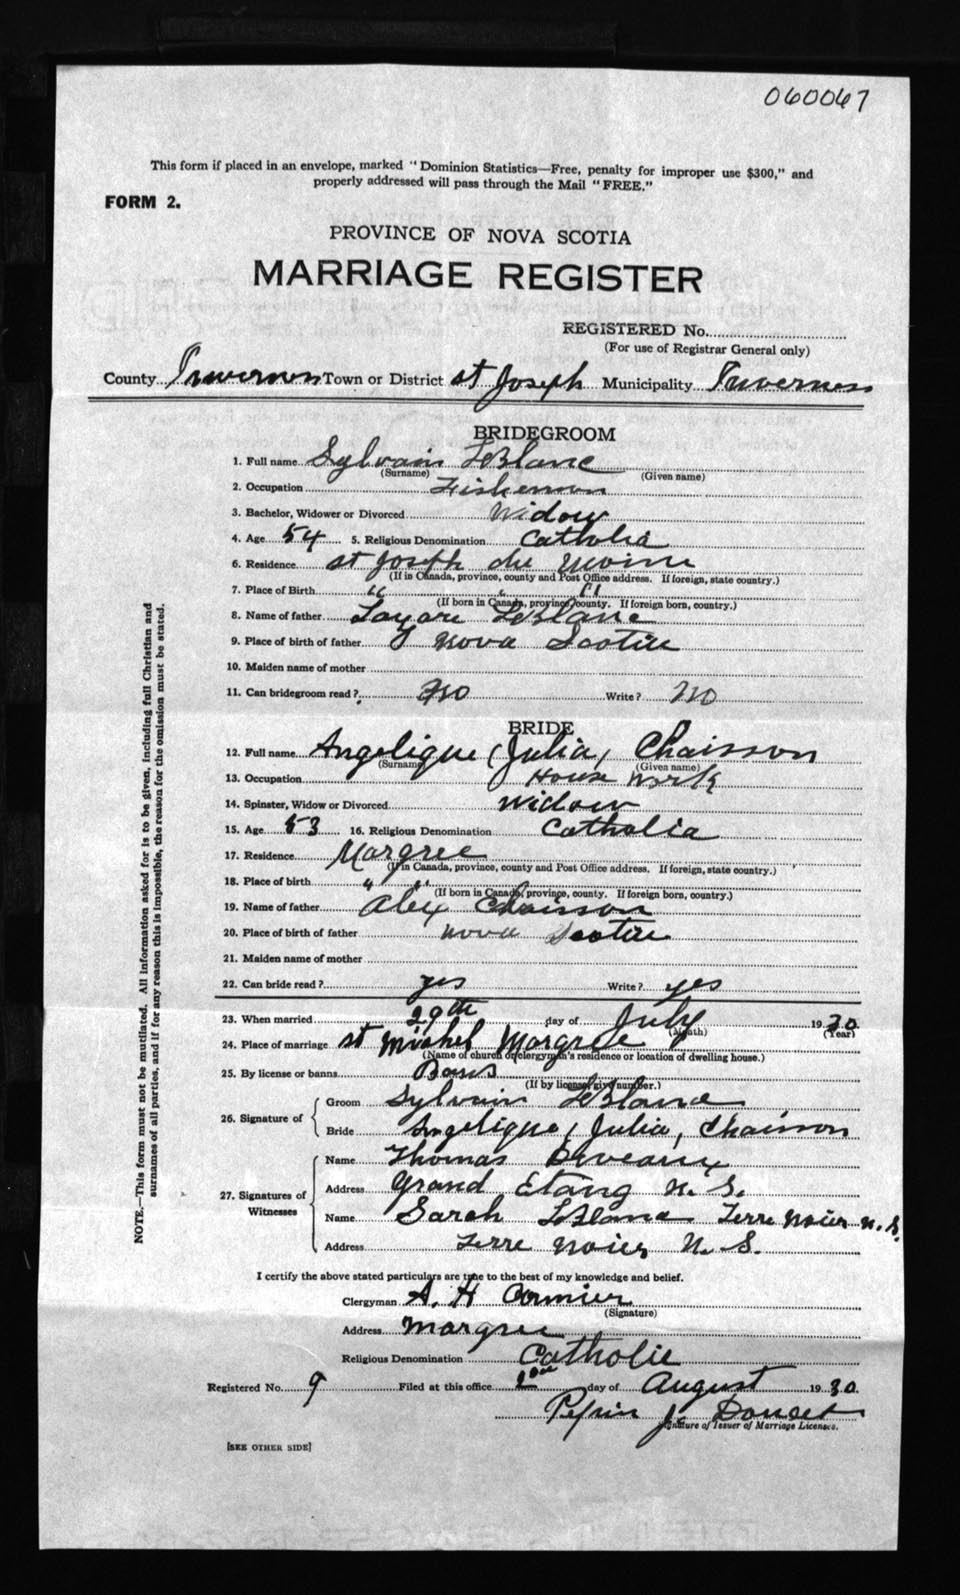 060067
This form if placed in an envelope, marked "Dominion Statistics—Free, penalty for improper use $300," and
properly addressed will pass through the Mail "FREE."
FORM 2.
PROVINCE OF NOVA SCOTIA
MARRIAGE REGISTER
REGISTERED No.
(For use of Registrar General only)
County Inverness Town or District St Joseph Municipality Inverness
BRIDEGROOM
1. Full name Sylvain LeBlanc
(Surname) (Given name)
2. Occupation Fisherman
3. Bachelor, Widower or Divorced Widow
4. Age 54 5. Religious Denomination Catholic
6. Residence St Joseph du Moine
(If in Canada, province, county and Post Office address. If foreign, state country.)
7. Place of Birth " " "
(If born in Canada, province, county. If foreign born, country.)
8. Name of father LeBlanc
9. Place of birth of father Nova Scotia
10. Maiden name of mother
11. Can bridegroom read? no Write? no
BRIDE
12. Full name Angelique (Julia) Chaisson
(Surname) (Given name)
13. Occupation House Work
14. Spinster, Widow or Divorced Widow
15. Age 53 16. Religious Denomination Catholic
17. Residence Margree
(If in Canada, province, county and Post Office address. If foreign, state country.)
18. Place of birth " "
(If born in Canada, province, county. If foreign born, country.)
19. Name of father Alex Chaisson
20. Place of birth of father Nova Scotia
21. Maiden name of mother
22. Can bride read? yes Write? yes
23. When married 29th day of July 1930
(Month) (Year)
24. Place of marriage St Michel Margree
(Name of church or clergyman's residence or location of dwelling house.)
25. By license or banns Bans
(If by license, give number.)
26. Signature of
Groom Sylvain LeBlanc
Bride Angelique (Julia) Chaisson
27. Signatures of Witnesses
Name Thomas Deveaux
Address Grand Etang N. S.
Name Sarah LeBlanc Terre Noire N. S.
Address Terre Noire N. S.
I certify the above stated particulars are true to the best of my knowledge and belief.
Clergyman A. H Cormier
(Signature)
Address Margree
Religious Denomination Catholic
Registered No. 9 Filed at this office day of August 1930
Doucet
Signature of Issuer of Marriage Licenses.
[SEE OTHER SIDE]
NOTE.—This form must not be mutilated. All information asked for is to be given, including full Christian and
surnames of all parties, and if for any reason this is impossible, the reason for the omission must be stated.